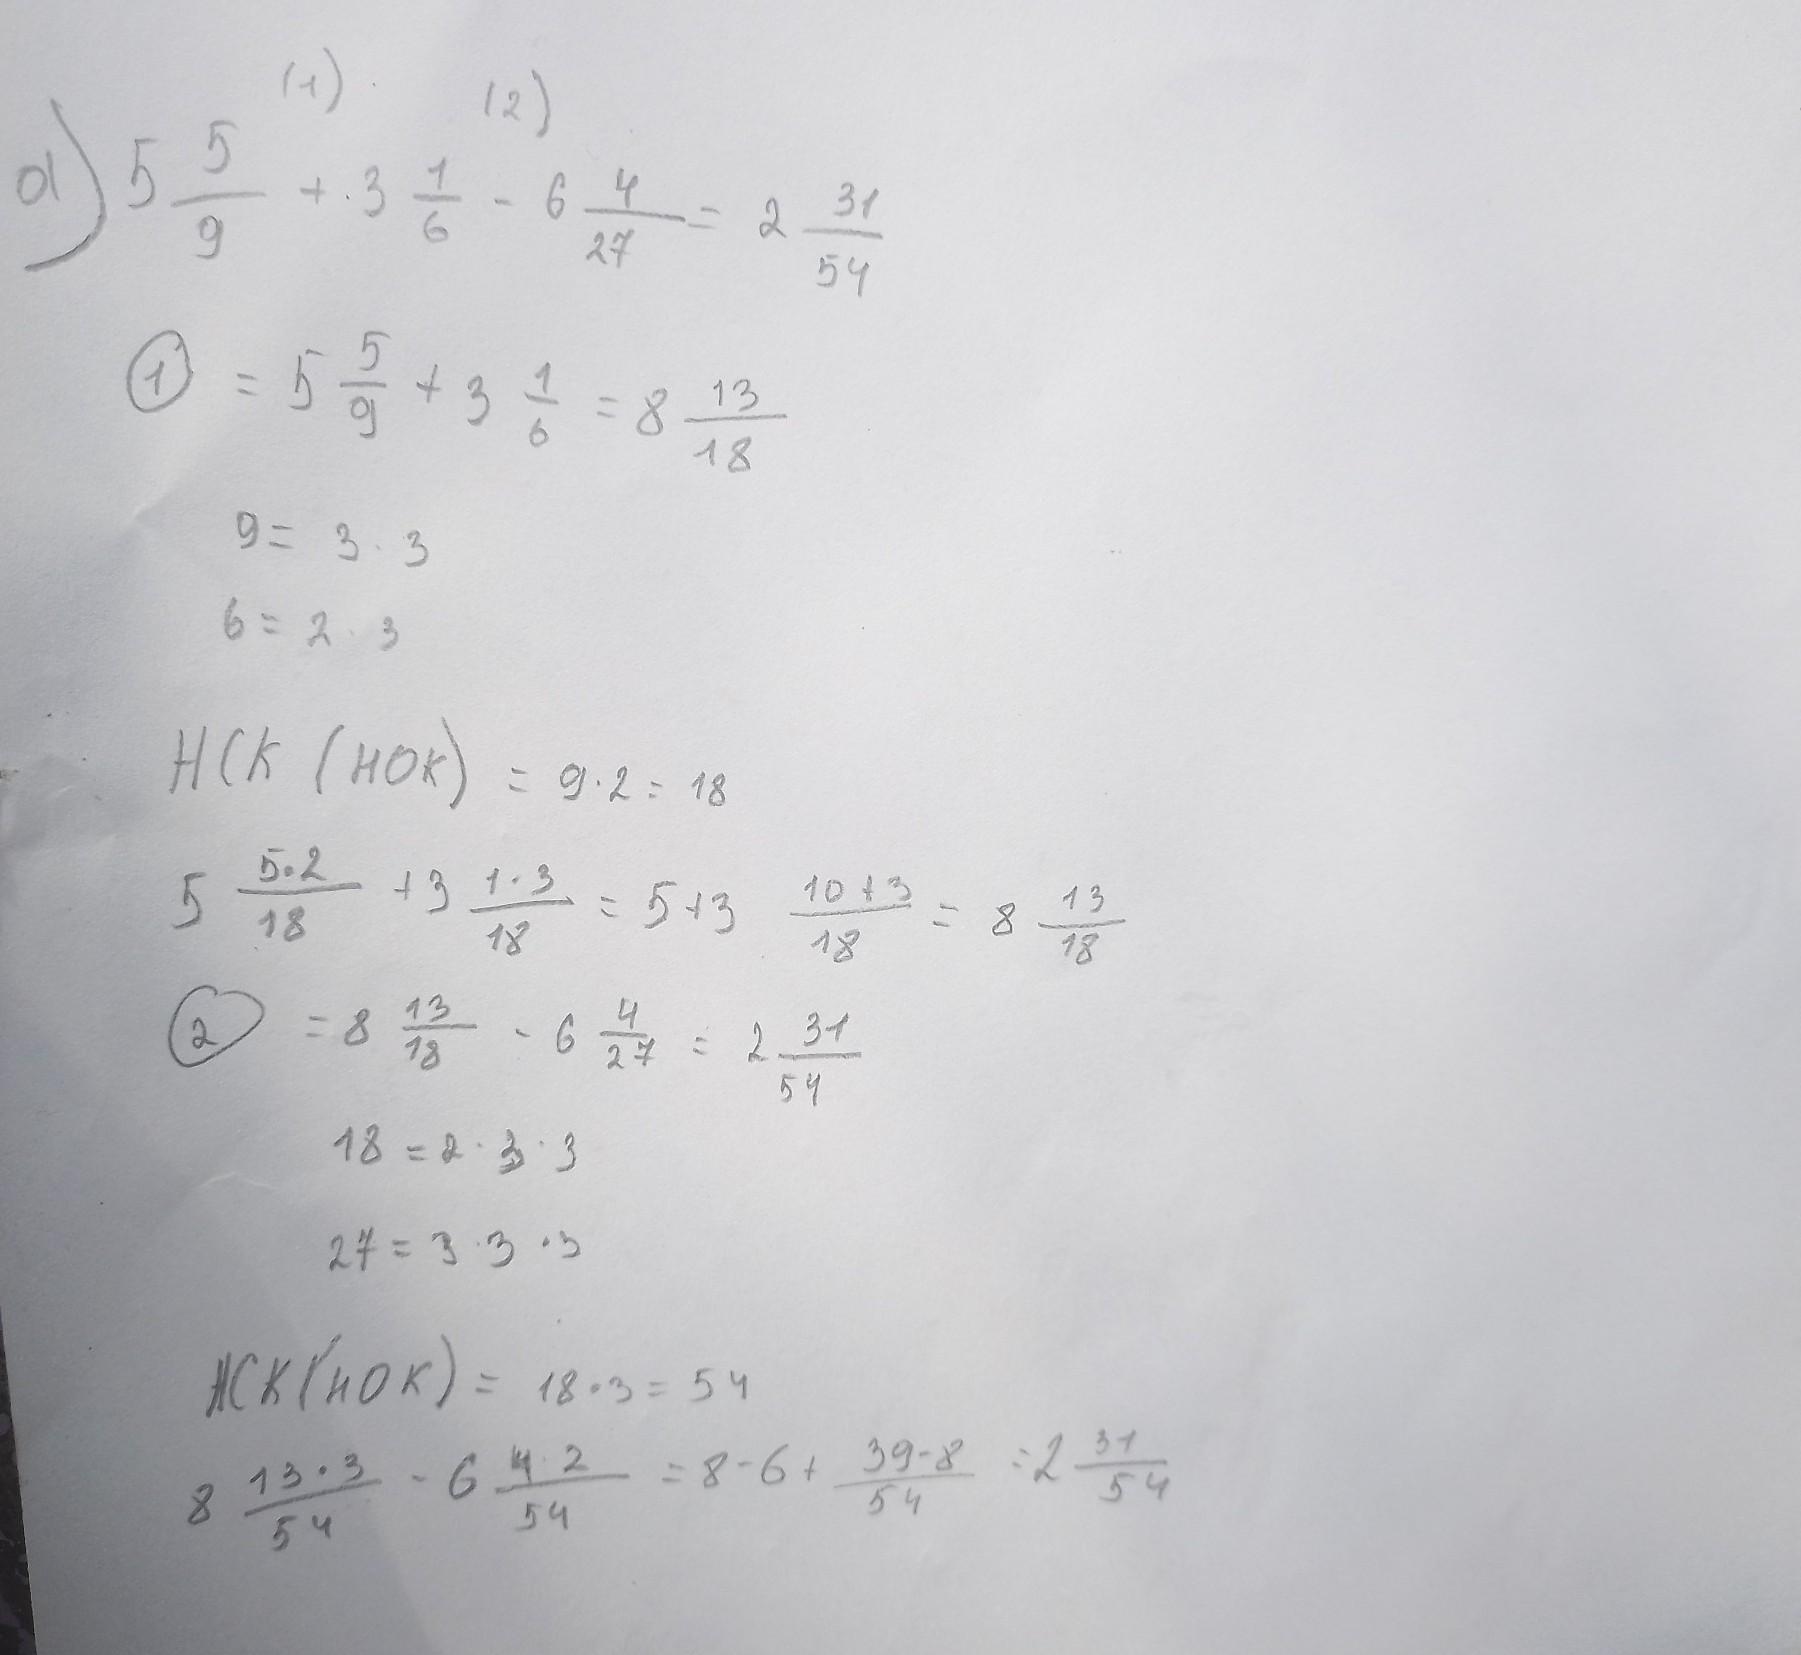 (1) (2)
а) 5 5/9 + 3 1/6 - 6 4/27 = 2 31/54
① = 5 5/9 + 3 1/6 = 8 13/18
9 = 3 · 3
6 = 2 · 3
НСК (НОК) = 9 · 2 = 18
5 5·2/18 + 3 1·3/18 = 5+3 10+3/18 = 8 13/18
② = 8 13/18 - 6 4/27 = 2 31/54
18 = 2 · 3 · 3
27 = 3 · 3 · 3
НСК (НОК) = 18 · 3 = 54
8 13·3/54 - 6 4·2/54 = 8 - 6 + 39-8/54 = 2 31/54